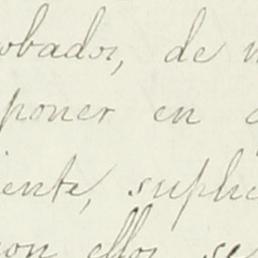 obador, de
poner en
iente, supli
on ellos, se